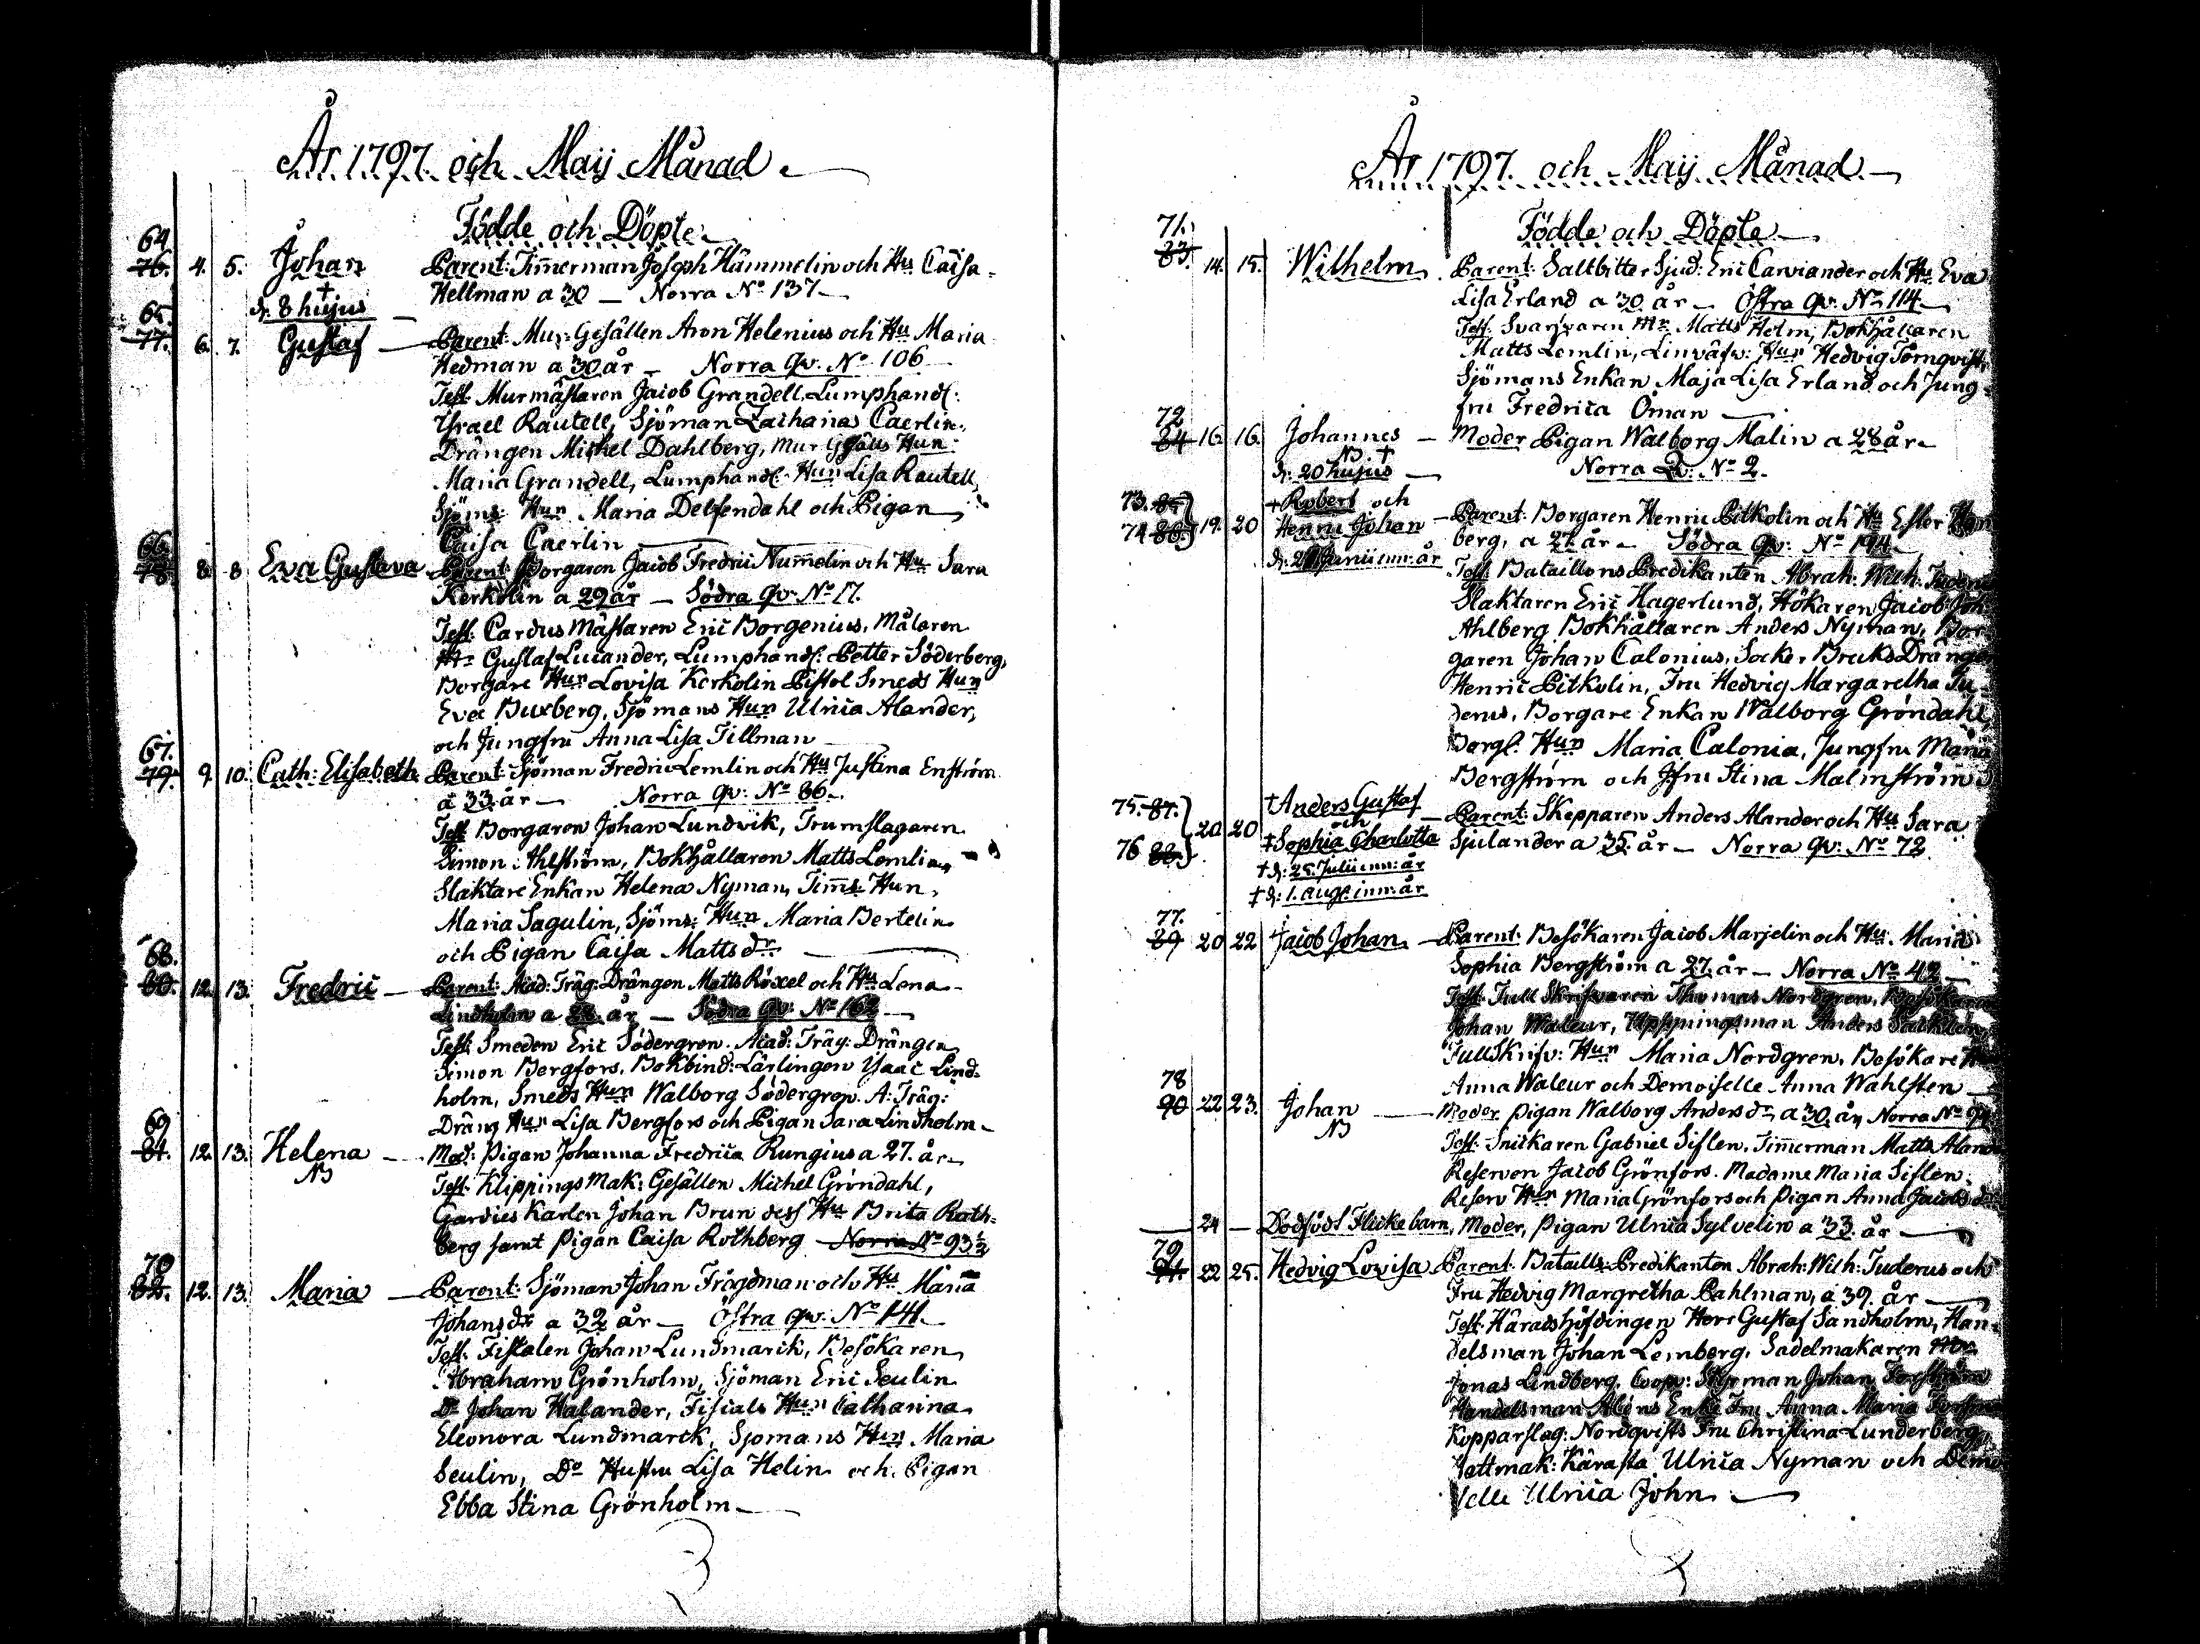 År 1797. och Maij Månad.
Födde och Döpte
64.
76. 4. 5. Johan Parent: Timmerman Joseph Hammelin och Hu Caisa
† Hellman a 30 — Norra No 137
d. 8 hujus
65.
77. 6. 7. Gustaf — Parent: Mur: Gesällen Aron Helenius och Hu Maria
Hedman a 30 år — Norra Qv. No 106
Test: Murmästaren Jacob Grandell, Lumphandl:
Israel Rautell, Sjöman Zacharias Caerlin,
Drängen Michel Dahlberg, Mur Gsälls Hun:
Maria Grandell, Lumphandl: Hun Lisa Rautell,
Sjöms: Hun Maria Delfendahl och Pigan
Caisa Caerlin
66.
78. 8. 8 Eva Gustava Parent: Borgaren Jacob Fredric Nummelin och Hu Sara
Kerkolin a 29 år — Södra Qv: No 17.
Test: Cardus Mästaren Eric Borgenius, Målaren
Mr Gustaf Lucander, Lumphandl: Petter Söderberg,
Borgare Hun Lovisa Kerkolin Pistol Smeds Hun
Eva Buxberg, Sjömans Hun Ulrica Alander,
och Jungfru Anna Lisa Tillman
67.
79. 9. 10. Cath: Elisabeth Parent: Sjöman Fredric Lemlin och Hu Justina Enström
a 33 år — Norra Qv: No 86.
Test: Borgaren Johan Lundvik, Trumslagaren
Simon Ahlström, Bokhållaren Matts Lemlin,
Slaktare Enkan Helena Nyman, Timms: Hun,
Maria Sagulin, Sjöms: Hun Maria Bertelin
och Pigan Caisa Matts dr.
68.
80. 12. 13. Fredric — Parent: Acad: Träg: Drängen Matts Röxel och Hu Lena
Lindholm a år — Södra Qv: No 162
Test: Smeden Eric Södergren. Acad: Träg: Drängen
Simon Bergfors, Bokbind: Lärlingen Isaac Lind-
holm, Smeds Hun Walborg Södergren. A: Träg:
Dräng Hun Lisa Bergfors och Pigan Sara Lindholm
69
81. 12. 13. Helena — Mod: Pigan Johanna Fredrica Rungius a 27. år
NB Test: Klippings Mak: Gesällen Michel Gröndahl,
Gardies Karlen Johan Brun dess Hu Brita Roth-
berg samt Pigan Caisa Rothberg Norra No 93½
70
82. 12. 13. Maria — Parent: Sjöman Johan Trägdman och Hu Maria
Johans dr a 32 år — Östra qv. No 141.
Test: Fiskalen Johan Lundmarck, Besökaren
Abraham Grönholm, Sjöman Eric Seulin
Do Johan Halander, Fiscals Hun Catharina
Eleonora Lundmarck, Sjömans Hun Maria
Seulin, Do Hustru Lisa Helin och Pigan
Ebba Stina Grönholm
År 1797. och Maij Månad.
Födde och Döpte
71.
83. 14. 15. Wilhelm Parent: Saltbitter Sjud: Eric Carviander och Hu Eva
Lisa Erland a 30 år — Östra qv: No 114
Test: Svarfvaren Mr Matts Holm, Bokhållaren
Matts Lemlin, Linväfv: Hun Hedvig Törnqvist,
Sjömans Enkan Maja Lisa Erland och Jung-
fru Fredrica Öman
72
84 16. 16. Johannes — Moder Pigan Walborg Malin a 28 år
NB. † Norra Q: No 2.
d: 20 hujus
73. 85. † Robert och
74 86. 19. 20 Henric Johan — Parent: Borgaren Henric Pitkolin och Hu Ester
berg, a 27 år — Södra Qv: No 194
d: Junii inn: år
Test: Bataillons Predikanten Abrah: Wilh:
Slaktaren Eric Hagerlund, Hökaren Jacob Joh:
Ahlberg Bokhållaren Anders Nyman, Bor-
garen Johan Calonius, Socker Bruks Dränge
Henric Pitkolin, Fru Hedvig Margaretha Tu-
derus, Borgare Enkan Walborg Gröndahl,
Borgl: Hun Maria Calonia, Jungfru Maria
Bergström och Jfru Stina Malmström
75. 87. † Anders Gustaf
och
76 88. 20 20 † Sophia Charlotta — Parent: Skepparen Anders Alander och Hu Sara
Sjulander a 35. år — Norra Qv: No 72
† d: 25 Julii inn: år
† d: 1. Aug. inn: år
77.
89 20 22 † Jacob Johan — Parent: Besökaren Jacob Marjelin och Hu. Maria
Sophia Bergström a 27. år — Norra No 42
Test: Tull Skrifvaren Thomas Nordgren,
Johan Waleur, Uppsyningsman Anders
Tull Skrifv: Hun Maria Nordgren, Besökare
Anna Waleur och Demoiselle Anna Wahlsten
78
90 22 23. Johan — Moder Pigan Walborg Anders dr, a 30. år, Norra No
NB Test: Snickaren Gabriel Siflen, Timmerman Matts
Reserven Jacob Grönfors. Madame Maria Siflen,
Reserv Hun Maria Grönfors och Pigan Anna Jacobs dr
— 24 — Dödfödt Flicke barn, Moder, Pigan Ulrica Sylvelin a 33. år
79.
91. 22 25. Hedvig Lovisa Parent: Bataills: Predikanten Abrah: Wilh: Tuderus och
Fru Hedvig Margretha Pahlman, a 39. år
Test: Häradshöfdingen Herr Gustaf Sandholm, Han-
delsman Johan Lemberg, Sadelmakaren
Jonas Lindberg, Coop: Styrman Johan
Handelsman Enke Fru Anna Maria
Kopparslag: Nordqvists Fru Christina Lunderberg,
Hattmak: Kärasta Ulrica Nyman och Demo
selle Ulrica John